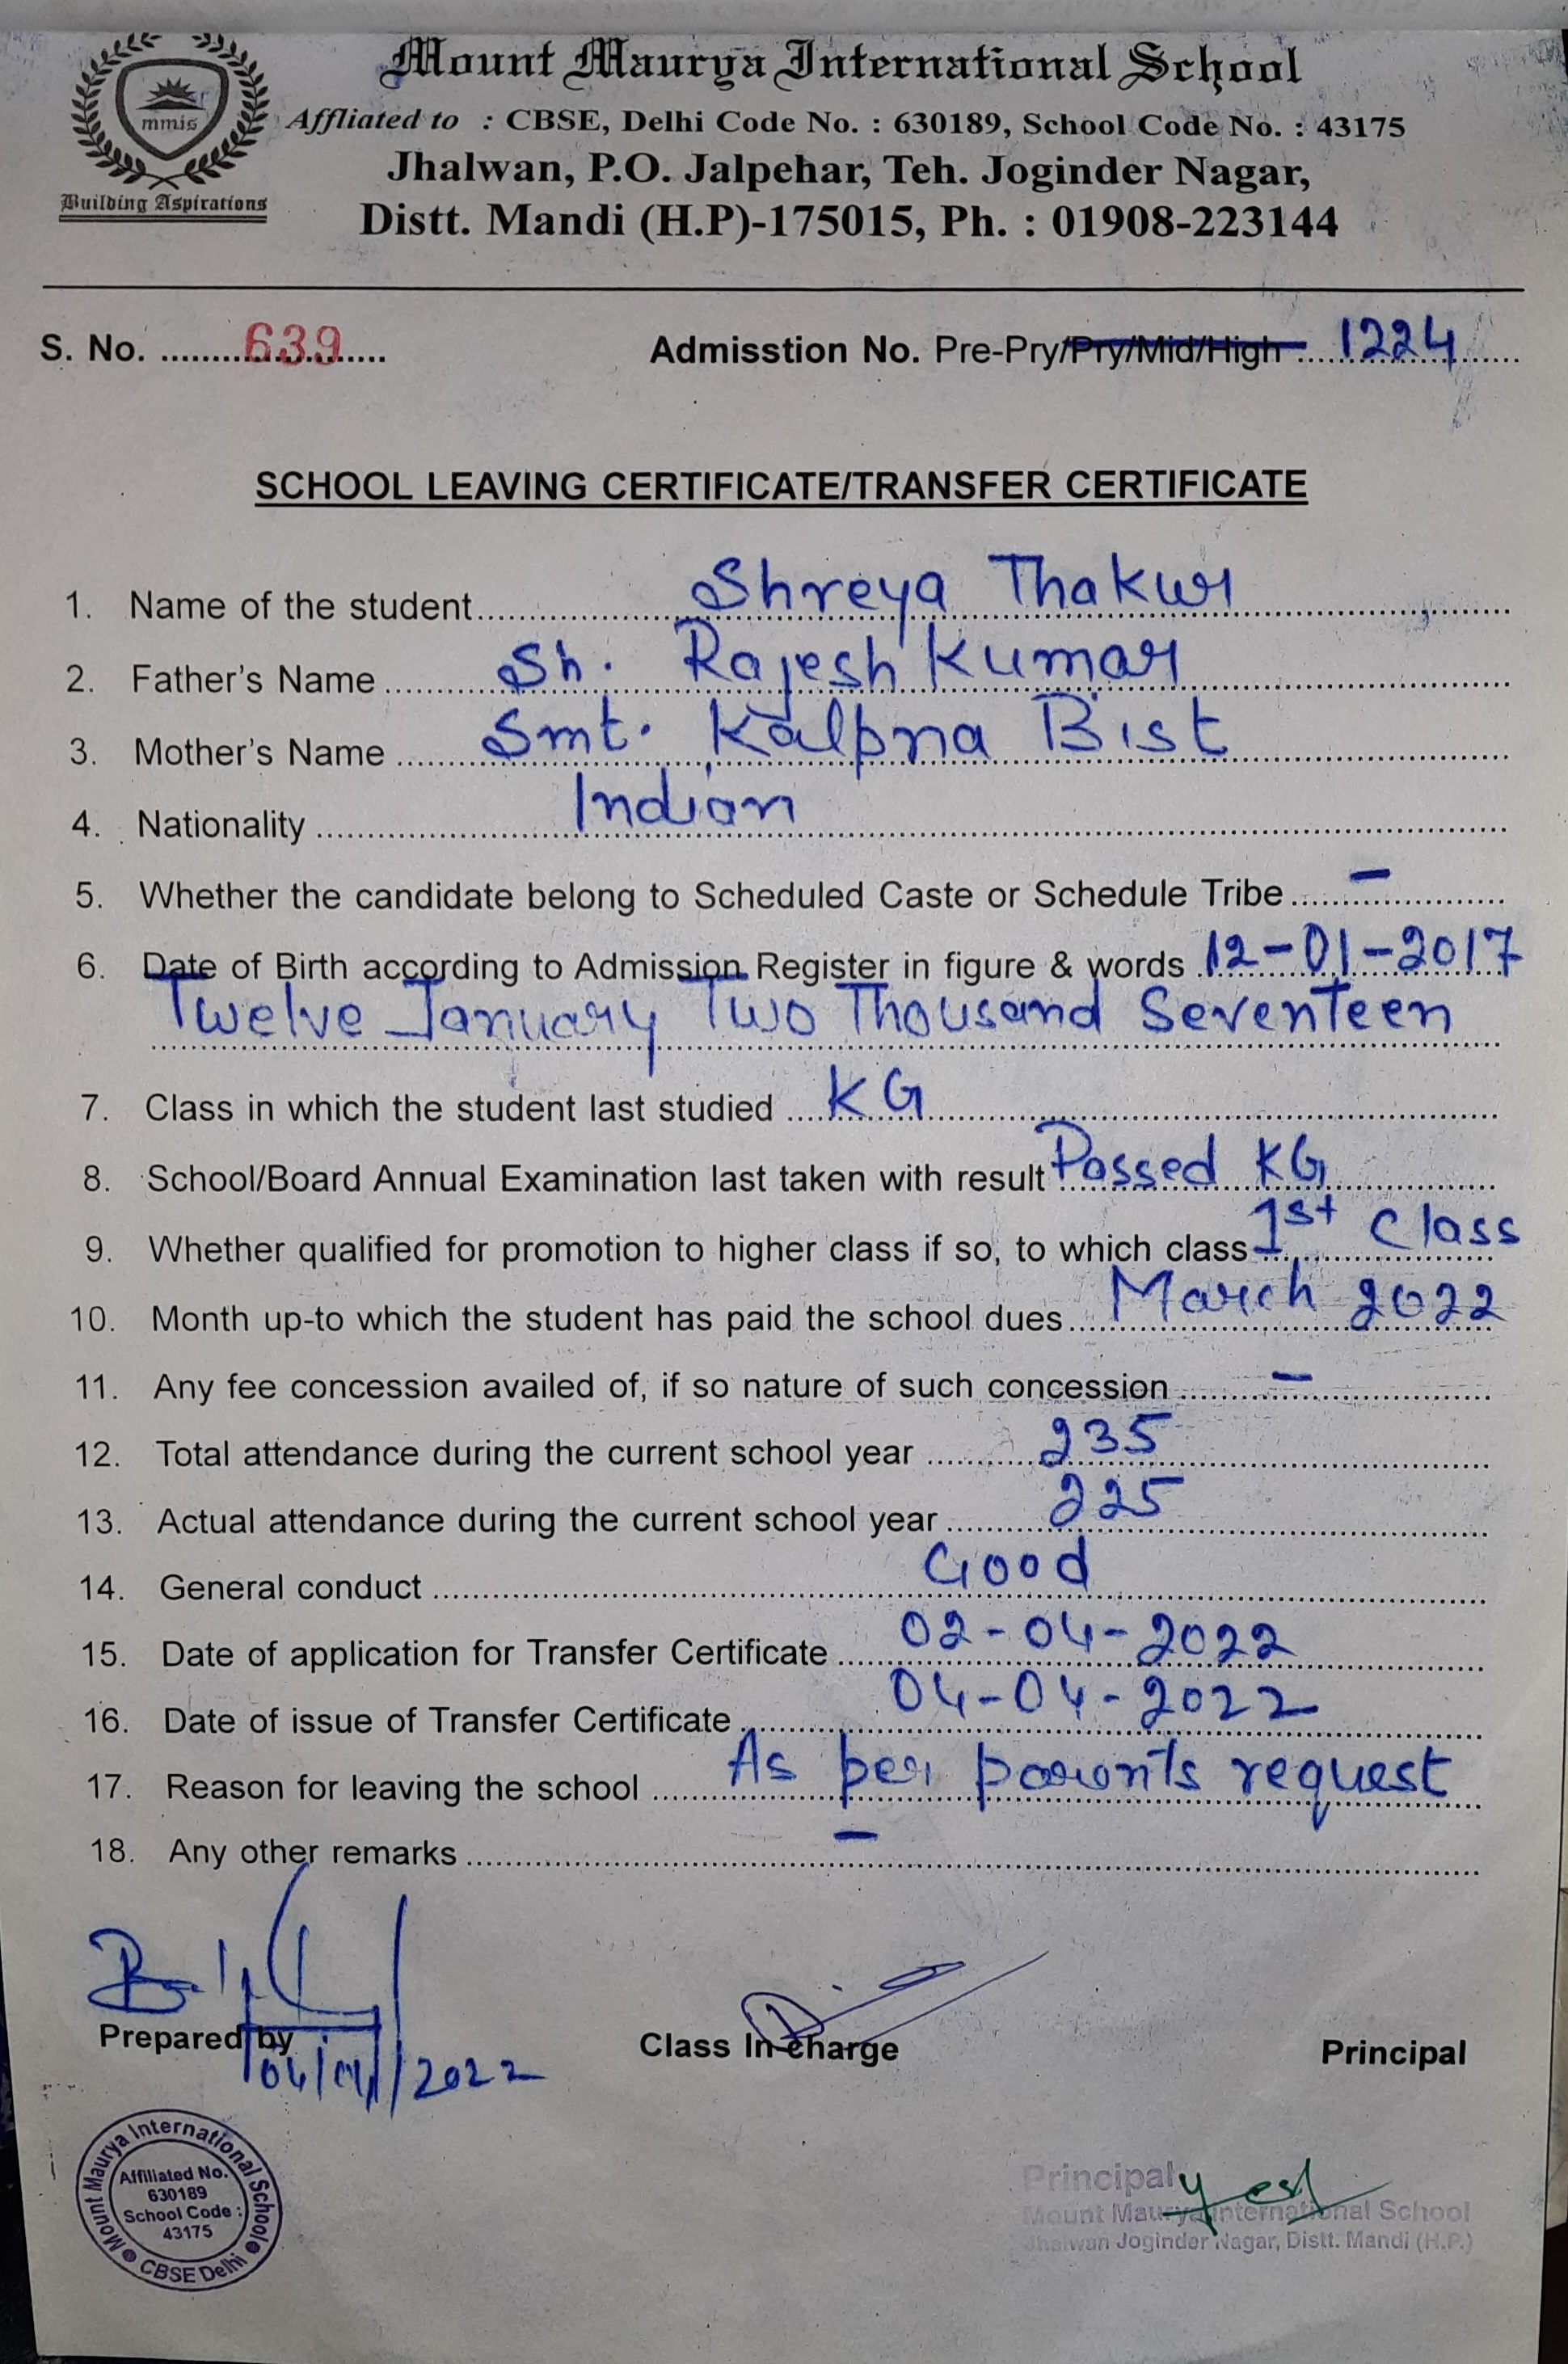 Mount Maurya International School
mmis
Building Aspirations
Affliated to : CBSE, Delhi Code No. : 630189, School Code No. : 43175
Jhalwan, P.O. Jalpehar, Teh. Joginder Nagar,
Distt. Mandi (H.P)-175015, Ph. : 01908-223144
S. No. 639 Admisstion No. Pre-Pry/Pry/Mid/High 1224
SCHOOL LEAVING CERTIFICATE/TRANSFER CERTIFICATE
1. Name of the student Shreya Thakur
2. Father's Name Sh. Rajesh Kumar
3. Mother's Name Smt. Kalpna Bist
4. Nationality Indian
5. Whether the candidate belong to Scheduled Caste or Schedule Tribe –
6. Date of Birth according to Admission Register in figure & words 12-01-2017
Twelve January Two Thousand Seventeen
7. Class in which the student last studied KG
8. School/Board Annual Examination last taken with result Passed KG
9. Whether qualified for promotion to higher class if so, to which class 1st Class
10. Month up-to which the student has paid the school dues March 2022
11. Any fee concession availed of, if so nature of such concession –
12. Total attendance during the current school year 235
13. Actual attendance during the current school year 225
14. General conduct Good
15. Date of application for Transfer Certificate 02-04-2022
16. Date of issue of Transfer Certificate 04-04-2022
17. Reason for leaving the school As per parents request
18. Any other remarks –
Prepared by Class In charge Principal
04/04/2022
Mount Maurya International School
Affiliated No.
630189
School Code :
43175
CBSE Delhi
Principal
Mount Maurya International School
Jhalwan Joginder Nagar, Distt. Mandi (H.P.)